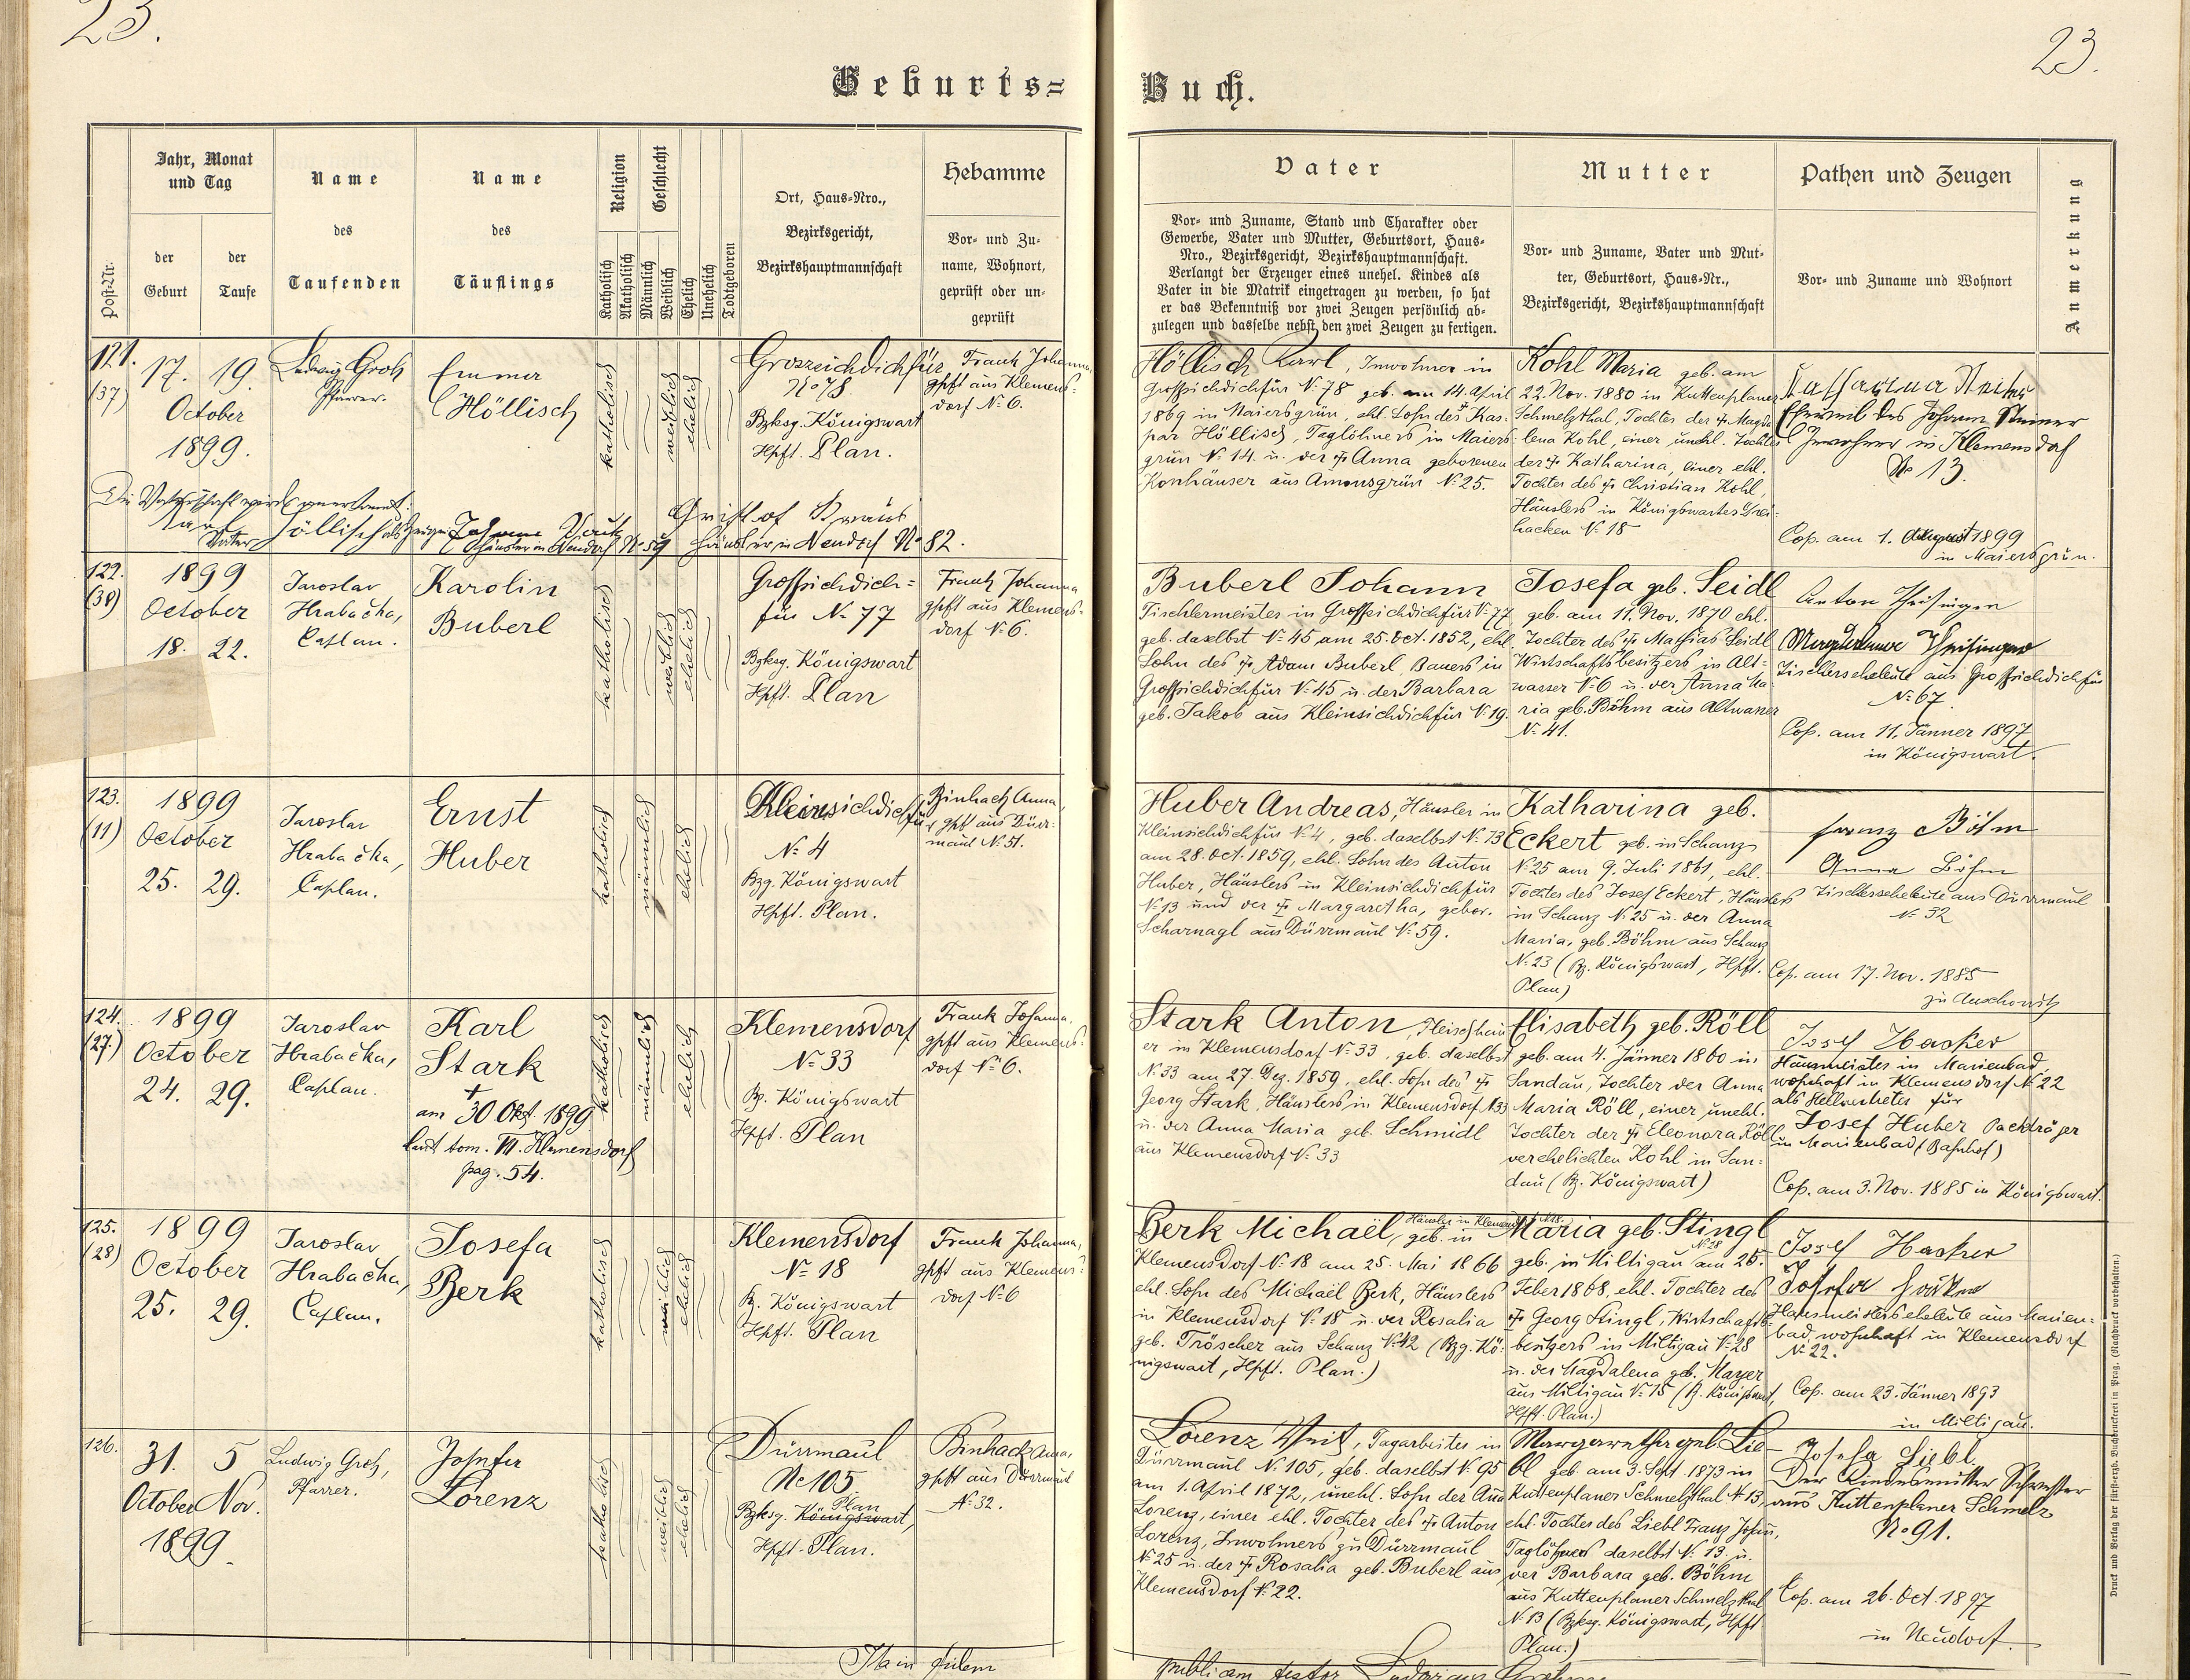 23.
23.
Geburts=
Buch.
Post-Nr.
Jahr, Monat
und Tag
der
Geburt
der
Taufe
Name
des
Taufenden
Name
des
Täuflings
Religion
Katholisch
Akatholisch
Geschlecht
Männlich
Weiblich
Ehelich
Unehelich
Todtgeboren
Ort, Haus-Nro.,
Bezirksgericht,
Bezirkshauptmannschaft
Hebamme
Vor- und Zu-
name, Wohnort,
geprüft oder un-
geprüft
Vater
Vor- und Zuname, Stand und Charakter oder
Gewerbe, Vater und Mutter, Geburtsort, Haus-
Nro., Bezirksgericht, Bezirkshauptmannschaft.
Verlangt der Erzeuger eines unehel. Kindes als
Vater in die Matrik eingetragen zu werden, so hat
er das Bekenntniß vor zwei Zeugen persönlich ab-
zulegen und dasselbe nebst den zwei Zeugen zu fertigen.
Mutter
Vor- und Zuname, Vater und Mut-
ter, Geburtsort, Haus-Nr.,
Bezirksgericht, Bezirkshauptmannschaft
Pathen und Zeugen
Vor- und Zuname und Wohnort
Anmerkung
121.
(37)
17. 19.
October
1899.
Ludwig Groh
Pfarrer.
Emma
Höllisch
katholisch
weiblich
ehelich
Groszsichdichfür
No 78
Bzksg. Königswart
Hpft. Plan.
Frank Johanna,
gpft aus Klemens-
dorf No 6.
Höllisch Karl, Inwohner in
Großsichdichfür No 78 geb. am 14. April
1869 in Maiersgrün, ehl. Sohn des † Kas-
par Höllisch, Taglöhners in Maiers-
grün No 14. u. der † Anna geborenen
Konhäuser aus Amonsgrün No 25.
Kohl Maria geb. am
22. Nov. 1880 in Kuttenplaner
Schmelzthal, Tochter der † Magda
lena Kohl, einer unehl. Tochter
der † Katharina, einer ehl.
Tochter des † Christian Kohl,
Häuslers in Königswarter Drei-
hacken No 18
Katharina Steiner
Eheweib des Johann Steiner
Inwohner in Klemensdorf
No 13.
Cop. am 1. August 1899
in Maiersgrün.
Die Vaterschaft wird anerkannt:
Karl Höllisch als Zeuge:
Vater
Häusler in Neudorf No 59
Häusler in Neudorf No 82.
122.
(38)
1899
October
18. 22.
Jaroslav
Hrabačka,
Caplan.
Karolin
Buberl
katholisch
weiblich
ehelich
Großsichdich-
für No 77
Bzksg. Königswart
Hpft. Plan
Frank Johanna
gpft aus Klemens-
dorf No 6.
Buberl Johann
Tischlermeister in Großsichdichfür No 77
geb. daselbst No 45 am 25. Oct. 1852, ehl.
Sohn des † Adam Buberl Bauers in
Großsichdichfür No 45 u. der Barbara
geb. Jakob aus Kleinsichdichfür No 19.
Josefa geb. Seidl
geb. am 11. Nov. 1870 ehl.
Tochter des † Mathias Seidl
Wirtschaftsbesitzers in Alt-
wasser No 6 u. der Anna Ma
ria geb. Böhm aus Altwasser
No 41.
Anton Theisinger
Magdalena Theisinger
Tischlerseheleute aus Großsichdichfür
No 67.
Cop. am 11. Jänner 1897
in Königswart.
123.
(11)
1899
October
25. 29.
Jaroslav
Hrabačka,
Caplan.
Ernst
Huber
katholisch
männlich
ehelich
Kleinsichdichfür
No 4
Bzg. Königswart
Hpft. Plan.
Binhack Anna,
gpft aus Dürr-
maul No 51.
Huber Andreas, Häusler in
Kleinsichdichfür No 4, geb. daselbst No 13
am 28. Oct. 1859, ehl. Sohn des Anton
Huber, Häuslers in Kleinsichdichfür
No 13 und der † Margaretha, gebor.
Scharnagl aus Dürrmaul No 59.
Katharina geb.
Eckert geb. in Schanz
No 25 am 9. Juli 1861, ehl.
Tochter des Josef Eckert, Häuslers
in Schanz No 25 u. der Anna
Maria, geb. Böhm aus Schanz
No 23 (Bz. Königswart, Hpft.
Plan)
Franz Böhm
Anna Böhm
Tischlerseheleute aus Dürrmaul
No 32
Cop. am 17. Nov. 1885
zu Auschowitz
124.
(27.)
1899
October
24. 29.
Jaroslav
Hrabačka,
Caplan.
Karl
Stark
†
am 30 Okt. 1899
laut tom. VII. Klemensdorf
pag. 54.
katholisch
männlich
ehelich
Klemensdorf
No 33
Bz. Königswart
Hpft. Plan
Frank Johanna,
gpft aus Klemens-
dorf No 6.
Stark Anton, Fleischhau
er in Klemensdorf No 33, geb. daselbst
No 33 am 27. Dez. 1859, ehl. Sohn des †
Georg Stark, Häuslers in Klemensdorf No 33
u. der Anna Maria geb. Schmidl
aus Klemensdorf No 33
Elisabeth geb. Röll
geb. am 4. Jänner 1860 in
Sandau, Tochter der Anna
Maria Röll, einer unehl.
Tochter der † Eleonora Röll
verehelichten Kohl in San-
dau (Bz. Königswart)
Josef Hacker
Hausmeister in Marienbad,
wohnhaft in Klemensdorf No 22
als Stellvertreter für
Josef Huber Packträger
in Marienbad (Bahnhof)
Cop. am 3. Nov. 1885 in Königswart.
125.
(28)
1899
October
25. 29.
Jaroslav
Hrabačka,
Caplan.
Josefa
Berk
katholisch
weiblich
ehelich
Klemensdorf
No 18
Bz. Königswart
Hpft. Plan
Frank Johanna,
gpft aus Klemens-
dorf No 6
Berk Michaël, Häusler in Klemensdorf No 18. geb. in
Klemensdorf No 18 am 25. Mai 1866
ehl. Sohn des Michaël Berk, Häuslers
in Klemensdorf No 18 u. der Rosalia
geb. Tröscher aus Schanz No 42 (Bzg. Kö-
nigswart, Hpft. Plan.)
Maria geb. Stingl
geb. in Miltigau No 28 am 25.
Feber 1868, ehl. Tochter des
† Georg Stingl, Wirtschafts-
besitzers in Miltigau No 28
u. der Magdalena geb. Mayer
aus Miltigau No 15 (B. Königswart,
Hpft. Plan.)
Josef Hacker
Josefa Hacker
Hausmeisterseheleute aus Marien-
bad, wohnhaft in Klemensdorf
No 22.
Cop. am 23. Jänner 1893
in Miltigau.
126.
31. 5
October Nov.
1899.
Ludwig Groh,
Pfarrer.
Josefa
Lorenz
katholisch
weiblich
ehelich
Dürrmaul
No 105.
Plan
Bzksg. Königswart,
Hpft. Plan.
Binhack Anna,
gpft aus Dürrmaul
No 32.
Lorenz Veit, Tagarbeiter in
Dürrmaul No 105, geb. daselbst No 95
am 1. April 1872, unehl. Sohn der Anna
Lorenz, einer ehl. Tochter des † Anton
Lorenz, Inwohners zu Dürrmaul
No 25 u. der † Rosalia geb. Buberl aus
Klemensdorf No 22.
Margaretha geb. Lie-
bl geb. am 3. Sept. 1873 in
Kuttenplaner Schmelzthal No 13,
ehl. Tochter des Liebl Franz Josef,
Taglöhners daselbst No 13 u.
der Barbara geb. Böhm
aus Kuttenplaner Schmelzthal
No 13 (Bzksg. Königswart, Hpft
Plan.)
Josefa Liebl,
Der Kindesmutter Schwester
aus Kuttenplaner Schmelz
No 91.
Cop. am 26. Oct. 1897
in Neudorf.
fidem
publicam testor Ludovicus
Druck und Verlag der fürst-erzb. Buchdruckerei in Prag. (Nachdruck vorbehalten.)